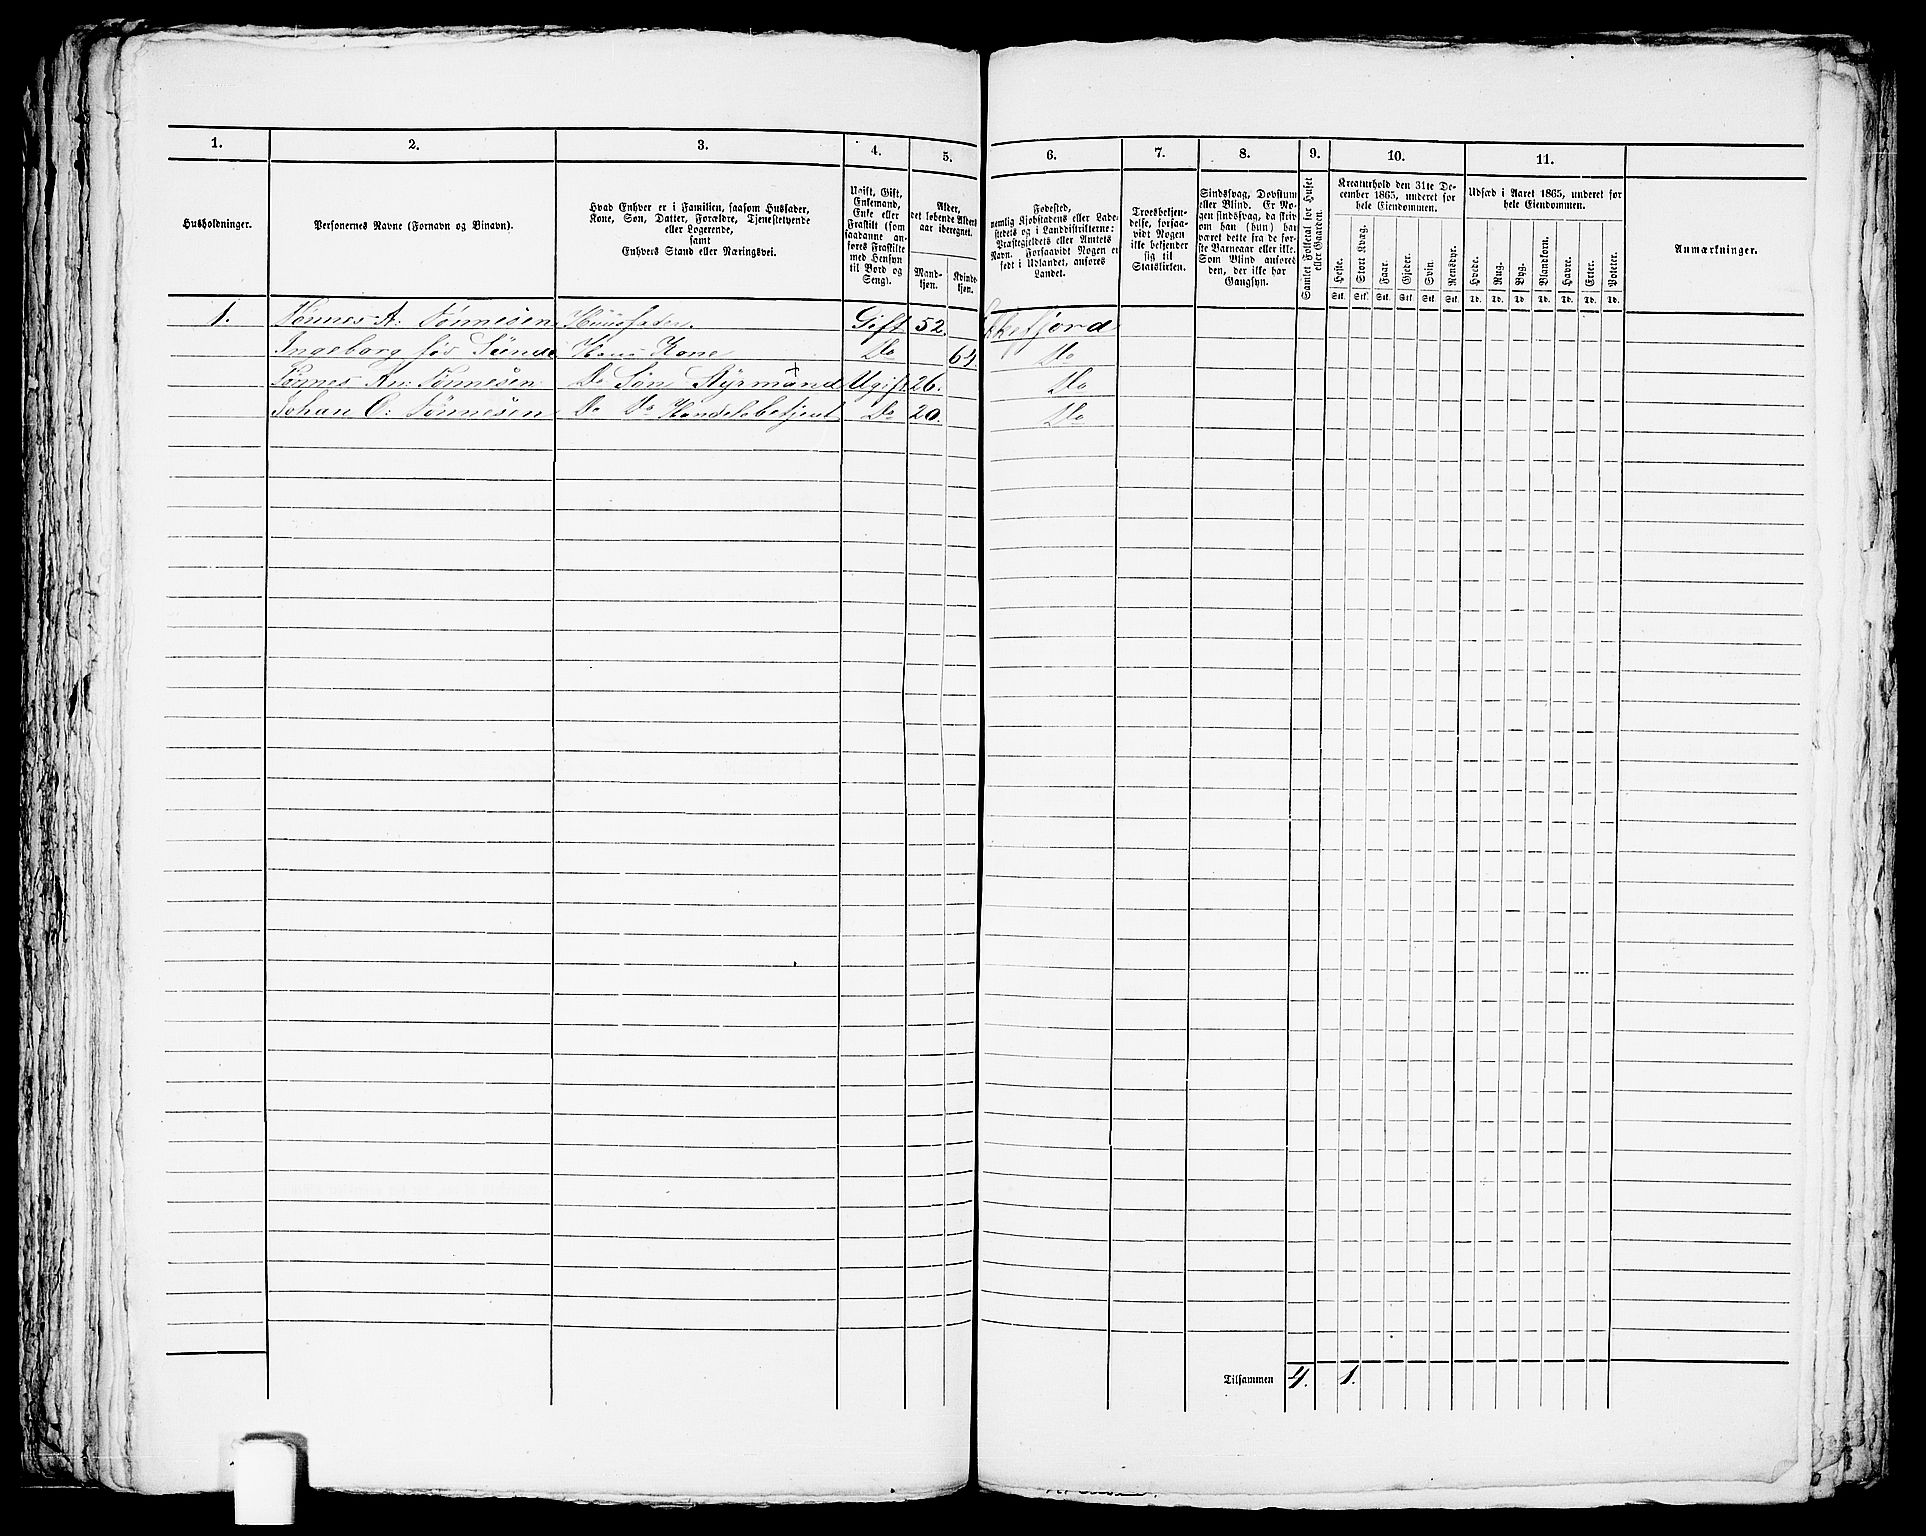 1. 2. 3. 4. 5. 6. 7. 8. 9. 10. 11.
Husholdninger.
Personernes Navne (Fornavn og Binavn).
Hvad Enhver er i Familien, saasom Husfader,
Kone, Søn, Datter, Forældre, Tjenestetyende
eller Logerende,
samt
Enhvers Stand eller Næringsvei.
Ugift, Gift,
Enkemand,
Enke eller
Fraskilt (som
saadanne an-
føres Fraskilte
med Hensyn
til Bord og
Seng).
Alder,
det løbende Alders-
aar iberegnet.
Mand-
kjøn.
Kvinde-
kjøn.
Fødested,
nemlig Kjøbstadens eller Lade-
stedets og i Landdistrikterne:
Præstegjeldets eller Amtets
Navn. Forsaavidt Nogen er
født i Udlandet, anføres
Landet.
Troesbekjen-
delse, forsaa-
vidt Nogen
ikke bekjender
sig til
Statskirken.
Sindssvag, Døvstum
eller Blind. Er No-
gen sindssvag, da skriv
om han (hun) har
været dette fra de før-
ste Barneaar eller ikke.
Som Blind anføres
den, der ikke har
Gangsyn.
Samlet Folketal for Huset
eller Gaarden.
Kreaturhold den 31te De-
cember 1865, underet for
hele Eiendommen.
Heste. Stort Kvæg. Faar. Gjeder. Svin. Rensdyr.
Stk. Stk. Stk. Stk. Stk. Stk.
Udsæd i Aaret 1865, underet for
hele Eiendommen.
Hvede. Rug. Byg. Blandkorn. Havre. Erter. Poteter.
Td. Td. Td. Td. Td. Td. Td.
Anmærkninger.
1. Tønnes A: Tønnesen Huusfader. Gift 52.
Ingeborg fød Hans Kone Do 64. Do
Tønnes Kn: Tønnesen Do Søn Styrmand Ugift 26. Do
Johan O: Tønnesen Do Do Handelsbetjent Do 20. Do
Tilsammen 4. 1.